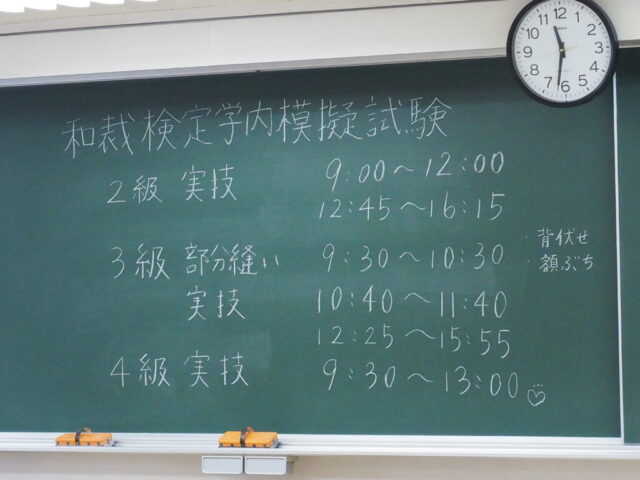 和裁検定学内模擬試験
2級 実技 9:00〜12:00
12:45〜16:15
3級 部分縫い 9:30〜10:30 ・背伏せ
・額ぶち
実技 10:40〜11:40
12:25〜15:55
4級 実技 9:30〜13:00
12
1
2
3
4
5
6
7
8
9
10
11